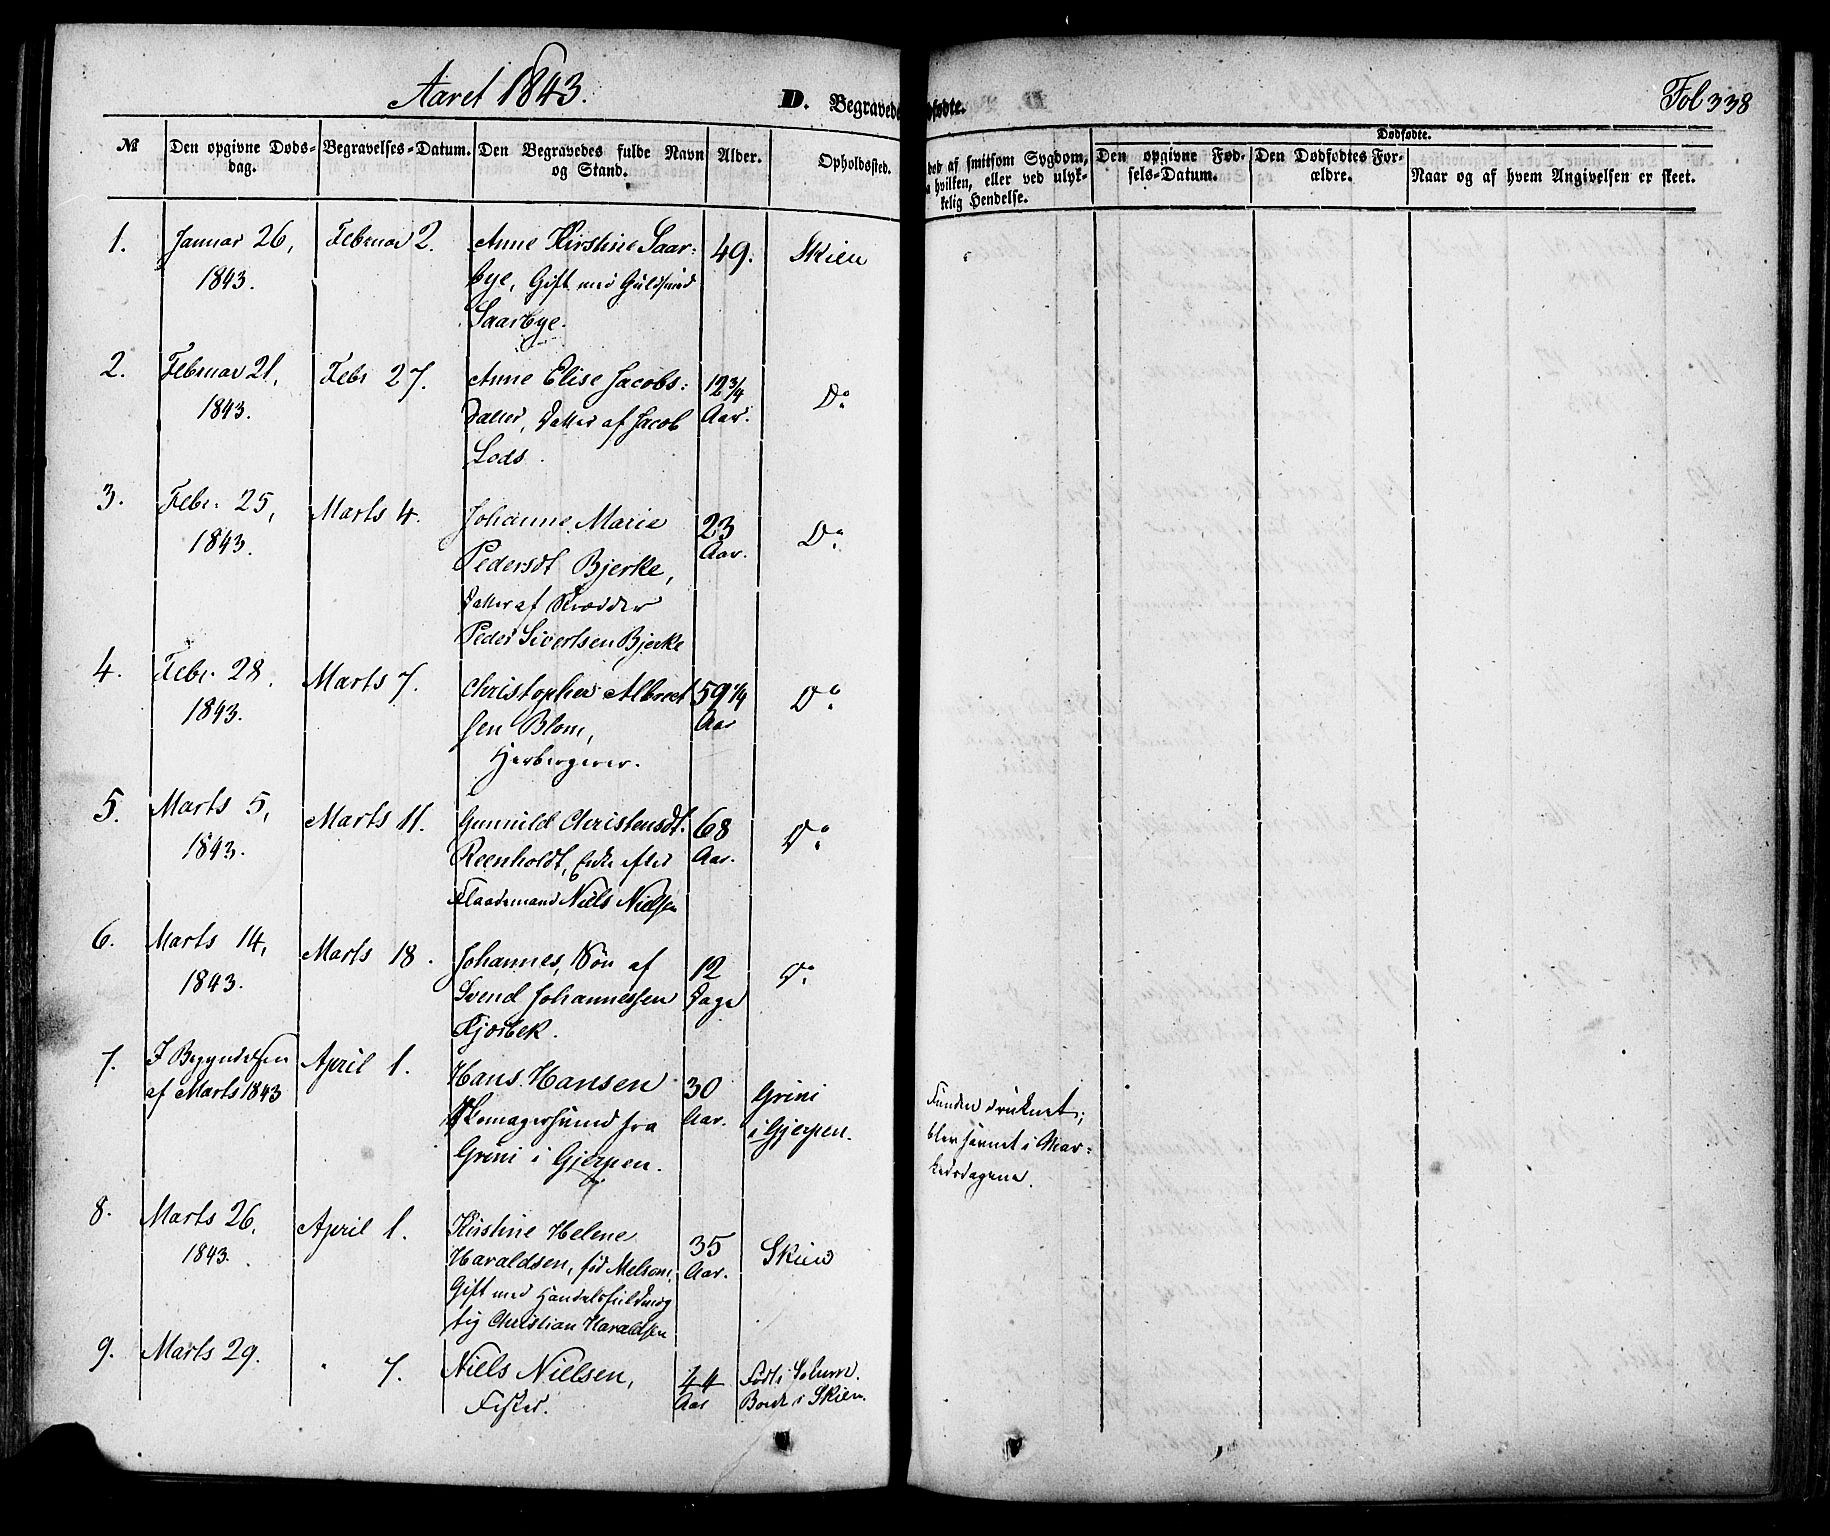 Aaret 1843.
D. Begravede
dfødte.
Fol 338
№
Den opgivne Døds-
dag.
Begravelses-Datum.
Den Begravedes fulde Navn
og Stand.
Alder.
Opholdssted.
død af smitsom Sygdom,
a hvilken, eller ved ulyk-
kelig Hendelse.
Dødfødte.
Den opgivne Fød-
sels-Datum.
Den Dødfødtes For-
ældre.
Naar og af hvem Angivelsen er skeet.
1.
Januar 26,
1843.
Februar 2.
Anne Kirstine Saar-
bye, Gift med Guldsmed
Saarbye.
49.
Skien
2.
Februar 21,
1843.
Febr 27.
Anne Elise Jacobs-
datter, Datter af Jacob
Lods.
12 3/4
Aar.
Do
3.
Febr. 25,
1843.
Marts 4.
Johanne Marie
Pedersdt Bjerke,
Datter af Skrædder
Peder Sivertsen Bjerke
23
Aar.
Do
4.
Febr. 28.
1843.
Marts 7.
Christopher Albrect
sen Blom,
Herbergerer.
59 1/4
Aar
Do
5.
Marts 5,
1843.
Marts 11.
Gunnild Christensdt.
Reenholdt, Enke efter
Flaademand Niels Nielsen
68
Aar.
Do
6.
Marts 14,
1843.
Marts 18.
Johannes, Søn af
Svend Johannessen
Kjørbek.
12
Dage
Do
7.
I Begyndelsen
af Marts 1843
April 1.
Hans Hansen
Skomagersvend fra
Grini i Gjerpen.
30
Aar.
Grini
i Gjerpen.
Funden druknet;
blev savnet i Mar-
kedsdagene.
8.
Marts 26,
1843.
April 1.
Kirstine Helene
Haraldsen, fød Melsom,
Gift med Handelsfuldmæg
tig Christian Haraldsen
35
Aar.
Skien
9.
Marts 29.
" 7.
Niels Nielsen,
Fisker.
44
Aar
Født i Solum.
Boede i Skien.